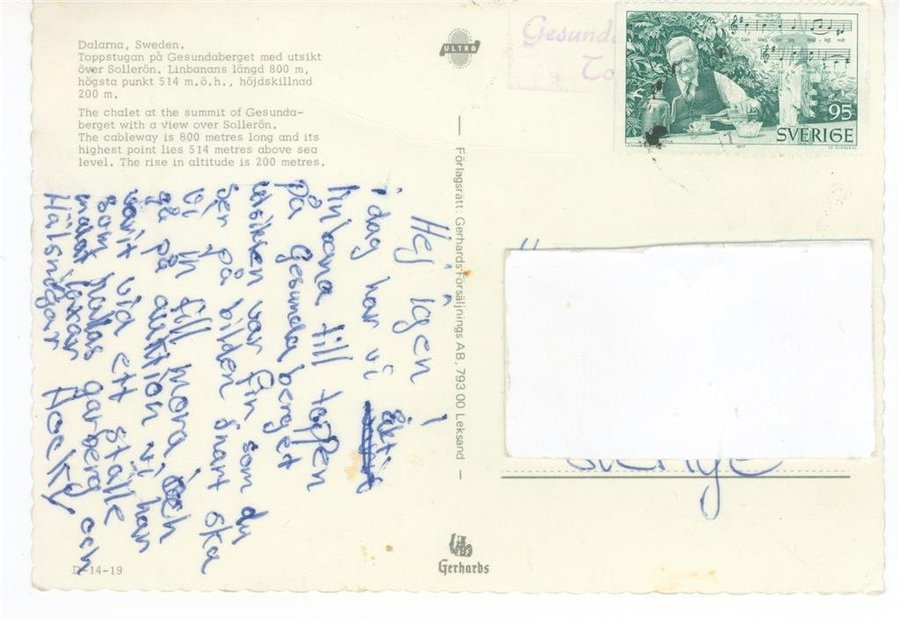 Dalarna, Sweden.
Toppstugan på Gesundaberget med utsikt
över Sollerön. Linbanans längd 800 m,
högsta punkt 514 m.ö.h., höjdskillnad
200 m.
The chalet at the summit of Gesunda-
berget with a view over Sollerön.
The cableway is 800 metres long and its
highest point lies 514 metres above sea
level. The rise in altitude is 200 metres.
ULTRA
Gesunda
95
SVERIGE
Hej igen!
i dag har vi åkt
linbana till toppen
på Gesunda berget
utsikten var fin som du
ser på bilden snart ska
vi in till mora och
gå på auktion vi har
varit vid ett ställe
som kallas garberg och
målat
Hälsningar
Förlagsrätt: Gerhards Försäljnings AB, 793 00 Leksand
Sverige
D-14-19
Gerhards